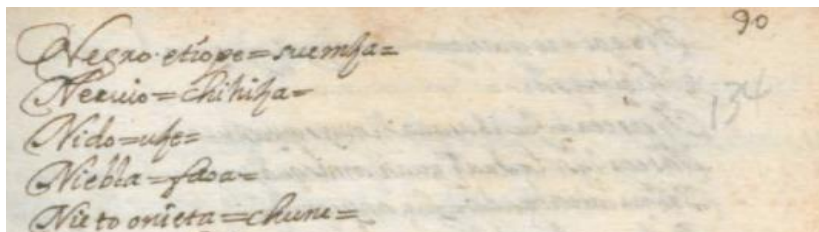 90
Negro. etiope=suemza=
134
Neruio=chihiza=
Nido=uze=
Niebla=faoa=
Nieto onieta=chune=